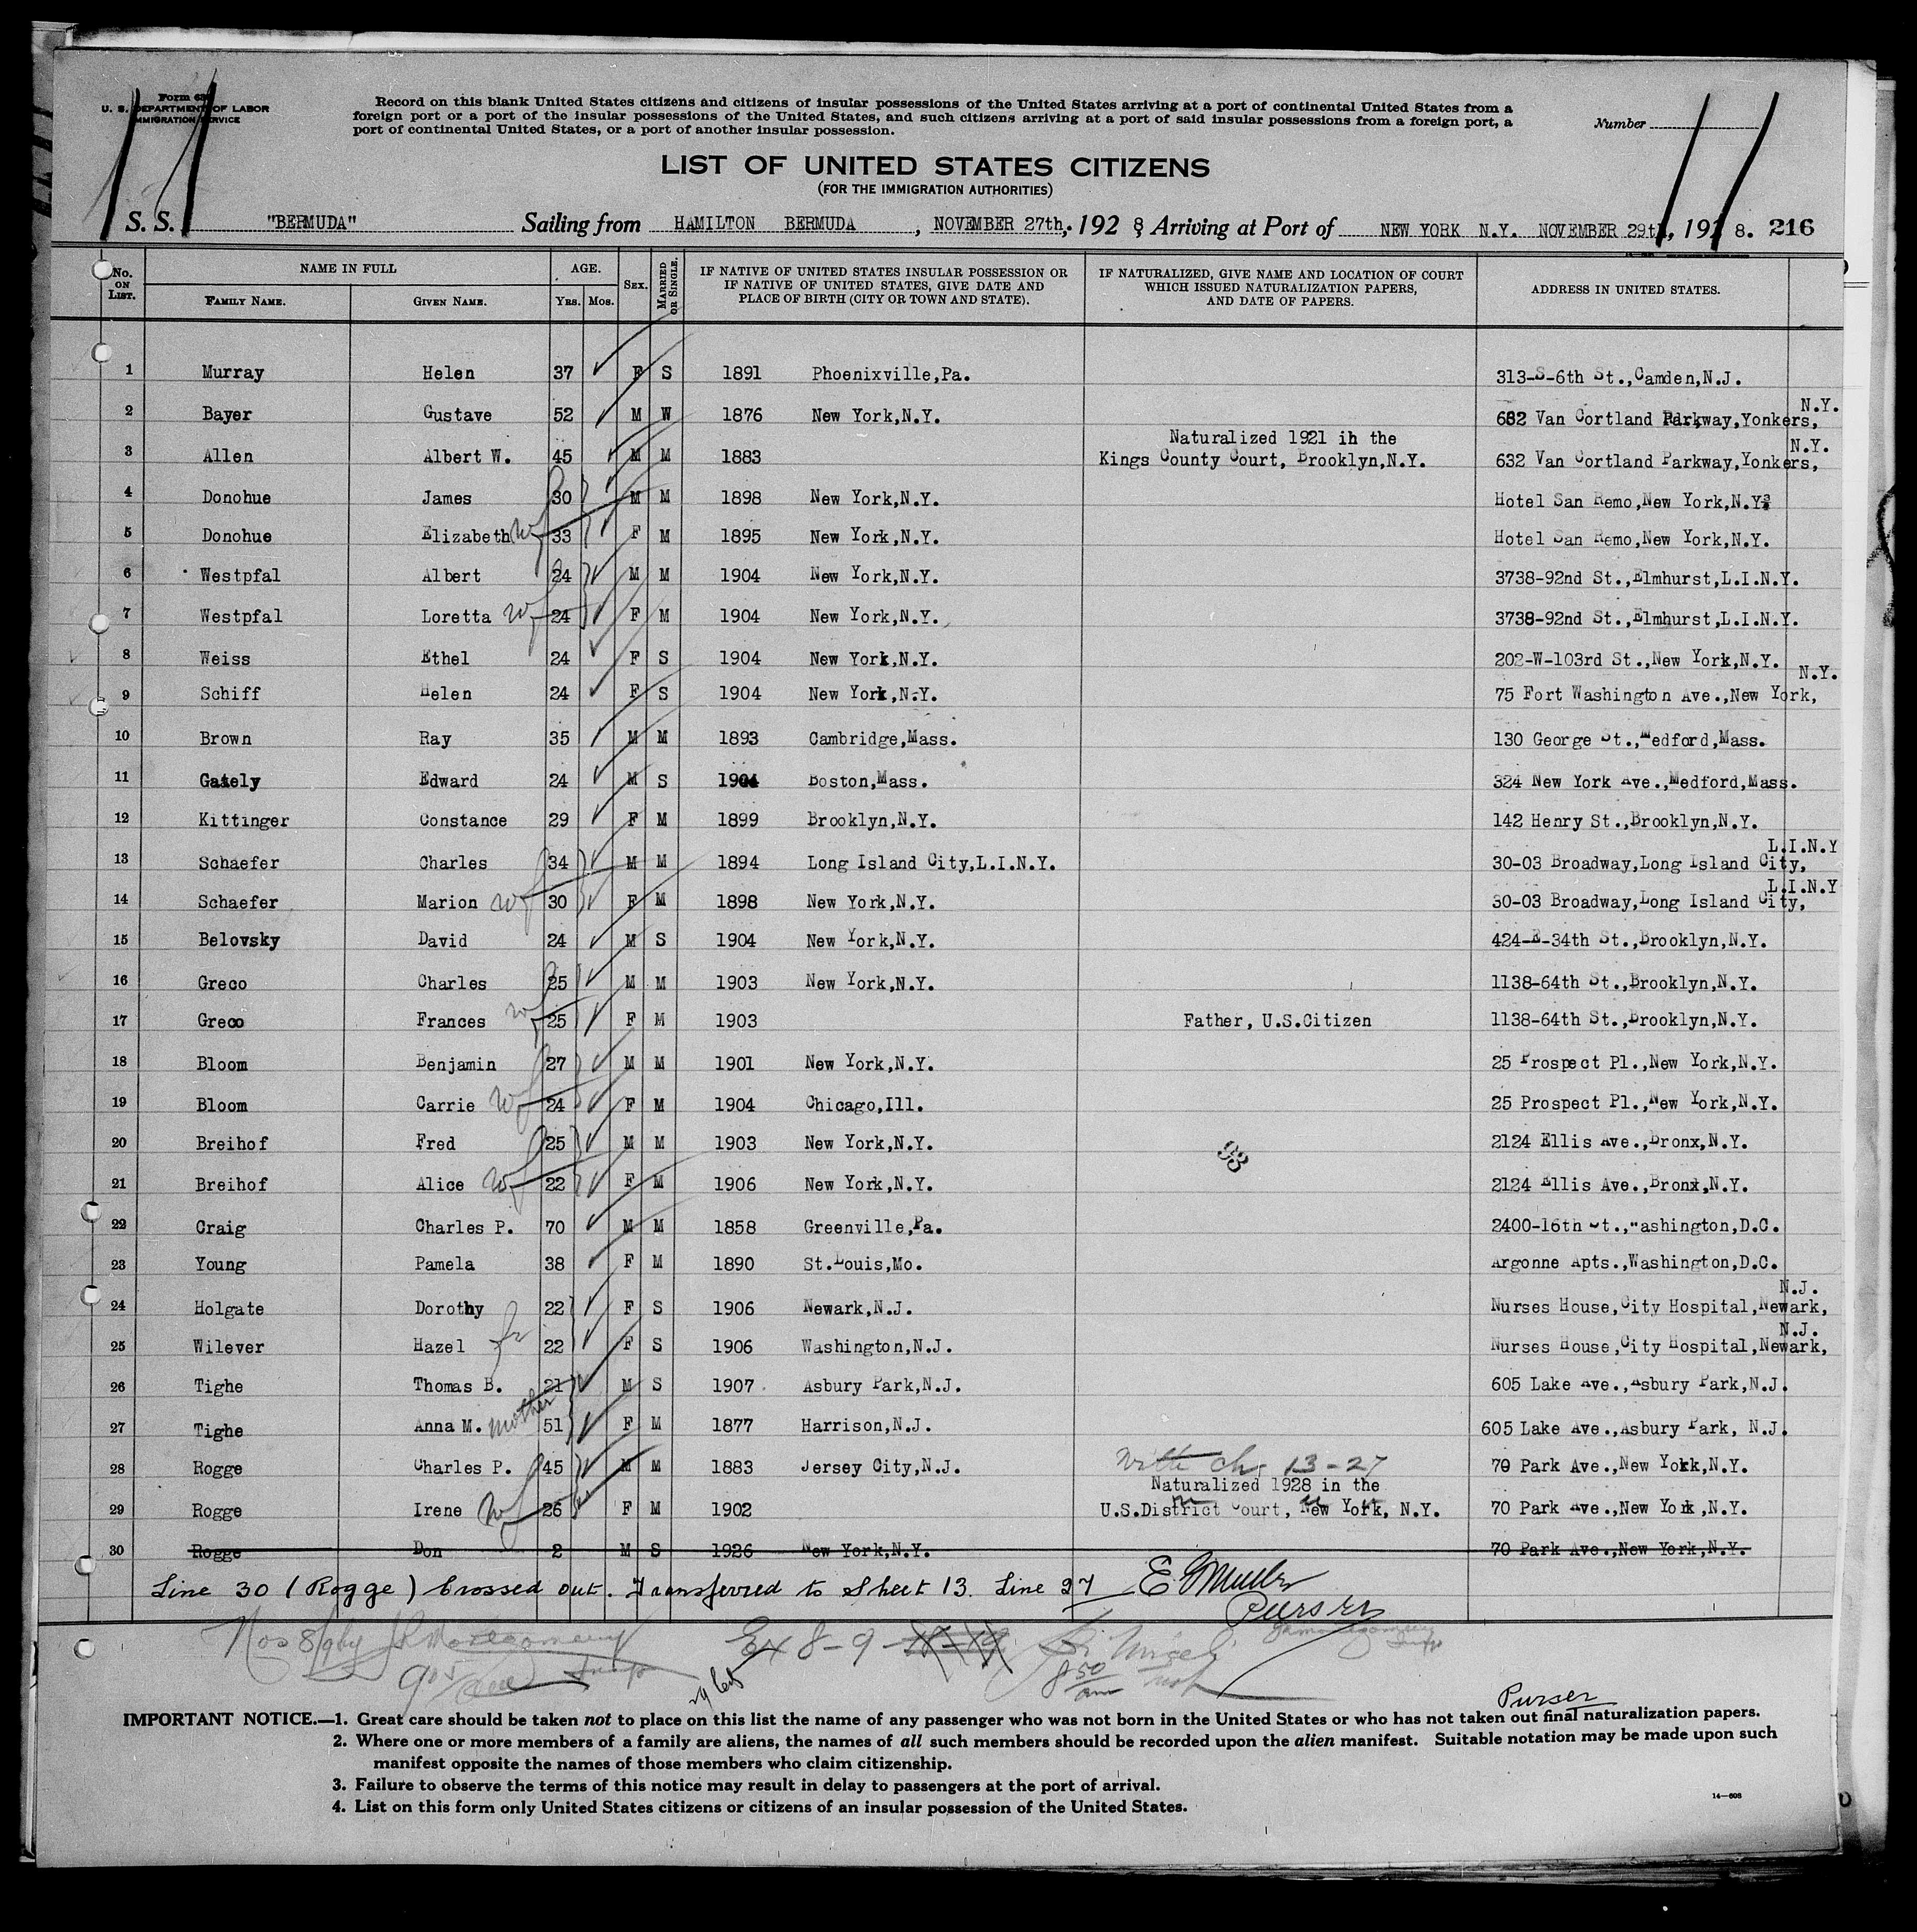 Form 63
U. S. DEPARTMENT OF LABOR
IMMIGRATION SERVICE
Record on this blank United States citizens and citizens of insular possessions of the United States arriving at a port of continental United States from a
foreign port or a port of the insular possessions of the United States, and such citizens arriving at a port of said insular possessions from a foreign port, a
port of continental United States, or a port of another insular possession.
Number
11
11
LIST OF UNITED STATES CITIZENS
(FOR THE IMMIGRATION AUTHORITIES)
S. S. "BERMUDA" Sailing from HAMILTON BERMUDA, NOVEMBER 27th, 1928 Arriving at Port of NEW YORK N.Y. NOVEMBER 29th, 1928. 216
No. ON LIST. NAME IN FULL AGE. SEX. MARRIED OR SINGLE. IF NATIVE OF UNITED STATES INSULAR POSSESSION OR IF NATIVE OF UNITED STATES, GIVE DATE AND PLACE OF BIRTH (CITY OR TOWN AND STATE). IF NATURALIZED, GIVE NAME AND LOCATION OF COURT WHICH ISSUED NATURALIZATION PAPERS, AND DATE OF PAPERS. ADDRESS IN UNITED STATES.
FAMILY NAME. GIVEN NAME. YRS. MOS.
1 Murray Helen 37 F S 1891 Phoenixville,Pa. 313-S-6th St.,Camden,N.J.
2 Bayer Gustave 52 M W 1876 New York,N.Y. 632 Van Cortland Parkway,Yonkers, N.Y.
3 Allen Albert W. 45 M M 1883 Naturalized 1921 in the Kings County Court, Brooklyn,N.Y. 632 Van Cortland Parkway,Yonkers, N.Y.
4 Donohue James 30 M M 1898 New York,N.Y. Hotel San Remo,New York,N.Y.
5 Donohue Elizabeth wf 33 F M 1895 New York,N.Y. Hotel San Remo,New York,N.Y.
6 Westpfal Albert 24 M M 1904 New York,N.Y. 3738-92nd St.,Elmhurst,L.I.N.Y.
7 Westpfal Loretta wf 24 F M 1904 New York,N.Y. 3738-92nd St.,Elmhurst,L.I.N.Y.
8 Weiss Ethel 24 F S 1904 New York,N.Y. 202-W-103rd St.,New York,N.Y.
9 Schiff Helen 24 F S 1904 New York,N.Y. 75 Fort Washington Ave.,New York, N.Y.
10 Brown Ray 35 M M 1893 Cambridge,Mass. 130 George St.,Medford,Mass.
11 Gately Edward 24 M S 1904 Boston,Mass. 324 New York Ave.,Medford,Mass.
12 Kittinger Constance 29 F M 1899 Brooklyn,N.Y. 142 Henry St.,Brooklyn,N.Y.
13 Schaefer Charles 34 M M 1894 Long Island City,L.I.N.Y. 30-03 Broadway,Long Island City, L.I.N.Y
14 Schaefer Marion wf 30 F M 1898 New York,N.Y. 30-03 Broadway,Long Island City, L.I.N.Y
15 Belovsky David 24 M S 1904 New York,N.Y. 424-E-34th St.,Brooklyn,N.Y.
16 Greco Charles 25 M M 1903 New York,N.Y. 1138-64th St.,Brooklyn,N.Y.
17 Greco Frances wf 25 F M 1903 Father, U.S.Citizen 1138-64th St.,Brooklyn,N.Y.
18 Bloom Benjamin 27 M M 1901 New York,N.Y. 25 Prospect Pl.,New York,N.Y.
19 Bloom Carrie wf 24 F M 1904 Chicago,Ill. 25 Prospect Pl.,New York,N.Y.
20 Breihof Fred 25 M M 1903 New York,N.Y. 2124 Ellis Ave.,Bronx,N.Y.
98
21 Breihof Alice wf 22 F M 1906 New York,N.Y. 2124 Ellis Ave.,Bronx,N.Y.
22 Craig Charles P. 70 M M 1858 Greenville,Pa. 2400-16th St.,Washington,D.C.
23 Young Pamela 38 F M 1890 St.Louis,Mo. Argonne Apts.,Washington,D.C.
24 Holgate Dorothy 22 F S 1906 Newark,N.J. Nurses House,City Hospital,Newark, N.J.
25 Wilever Hazel fr 22 F S 1906 Washington,N.J. Nurses House,City Hospital,Newark, N.J.
26 Tighe Thomas B. 21 M S 1907 Asbury Park,N.J. 605 Lake Ave.,Asbury Park,N.J.
27 Tighe Anna M. mother 51 F M 1877 Harrison,N.J. 605 Lake Ave.,Asbury Park, N.J.
28 Rogge Charles P. 45 M M 1883 Jersey City,N.J. With ch. 13-27 70 Park Ave.,New York,N.Y.
29 Rogge Irene wf 26 F M 1902 Naturalized 1928 in the U.S.District Court, New York, N.Y. 70 Park Ave.,New York,N.Y.
30 Rogge Don 2 M S 1926 New York,N.Y. 70 Park Ave.,New York,N.Y.
Line 30 (Rogge) Crossed out. Transferred to Sheet 13. Line 27 E Muller
Purser
Nos 8/9 by J Montgomery Ex 8-9
905 Insp 850 am
Purser
IMPORTANT NOTICE.—1. Great care should be taken not to place on this list the name of any passenger who was not born in the United States or who has not taken out final naturalization papers.
2. Where one or more members of a family are aliens, the names of all such members should be recorded upon the alien manifest. Suitable notation may be made upon such
manifest opposite the names of those members who claim citizenship.
3. Failure to observe the terms of this notice may result in delay to passengers at the port of arrival.
4. List on this form only United States citizens or citizens of an insular possession of the United States.
14—608